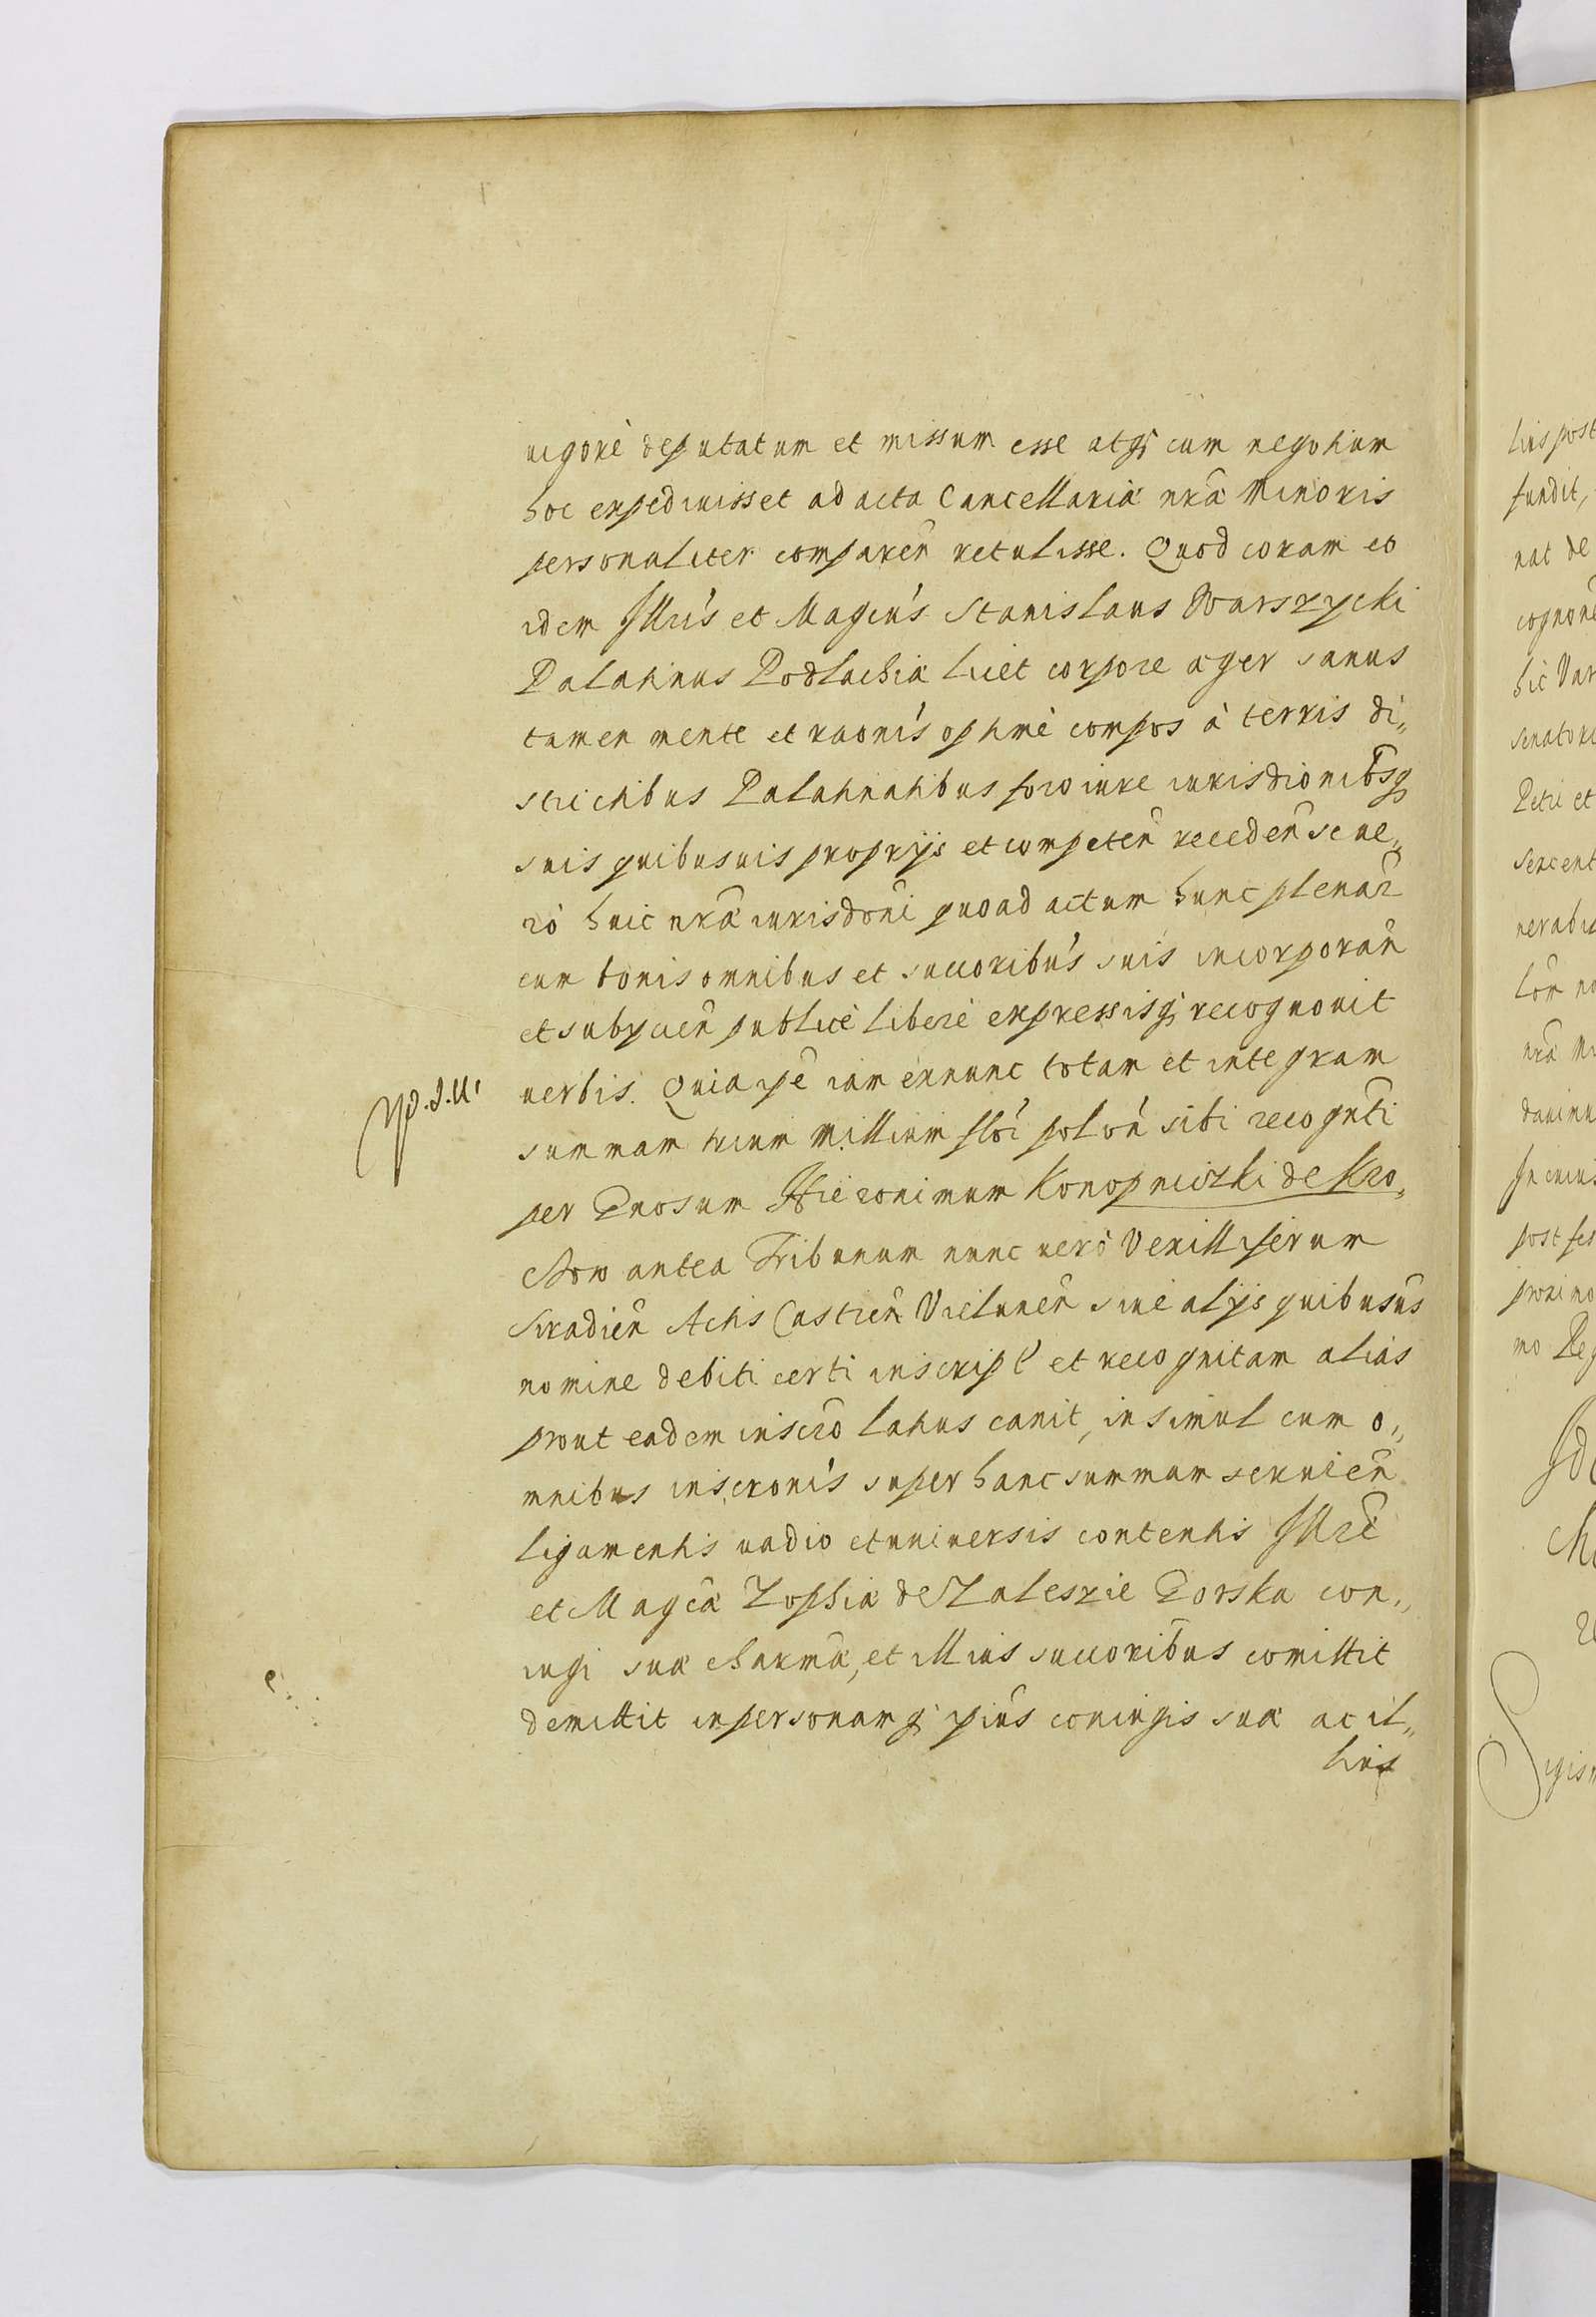 uigorè deputatum et missum esse atq; cum negotium
hoc expediuisset ad acta Cancellariæ nrã Minoris
personaliter comparen̄ retulisse. Quod coram eo
idem Illris et Magcus Stanislaus Warszycki
Palatinus Podlachiæ licet corpore æger sanus
tamen mente et raonis optimè compos à terris di„
strictibus Palatinatibus foro iure iurisdionibusq;
suis quibusuis proprijs et competen̄ receden̄ se ue„
rò huic nrã iurisdoni quoad actum hunc plenar̃
cum bonis omnibus et succoribus suis incorporan̄
et subycien̄ publicè liberè expressisq; recognouit
uerbis. Quia ipe iam exnunc totam et integram
summam trium Millium flor polon̄ sibi recognti
per Gnosum Hieronimum Konopniczki de Kro„
chow antea Tribunum nunc uerò Vexilliferum
Siradien̄ Actis Castren̄ Vielunen̄ siue alijs quibusuis
nomine debiti certi inscript et recognitam aliàs
prout eadem inscro latius canit, insimul cum o„
mnibus inscronis super hanc summam seruien̄
ligamentis uadio et uniuersis contentis Illrẽ
et Magcæ Zophiæ de Zaleszie Gorska con„
iugi suæ charmæ, et illius succoribus comittit
demittit inpersonamq; ipius coniugis suæ ac il„
lius
lius post
fundit,
nat de
hic Var
Petri et
post fes